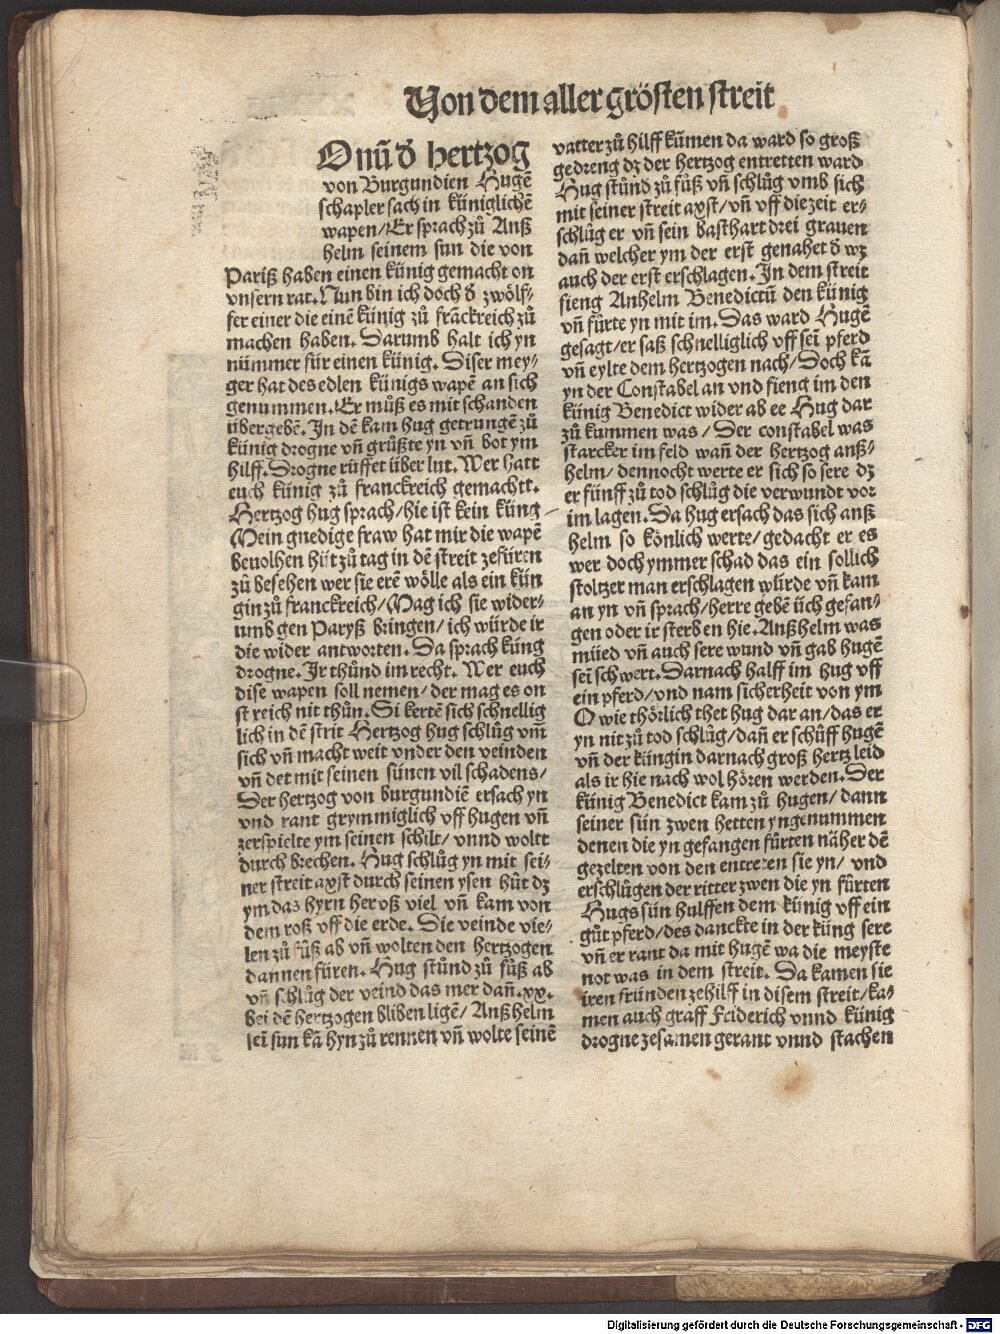 Von dem aller grösten streit
O nũ dʾ hertzog
von Burgundien Hugẽ
schapler sach in küniglichẽ
wapen/Er sprach zů Anß
helm seinem sun die von
Pariß haben einen künig gemacht on
vnsern rat. Nun bin ich doch dʾ zwölf-
fer einer die einẽ künig zů frãckreich zů
machen haben. Darumb halt ich yn
nümmer für einen künig. Diser mey-
ger hat des edlen künigs wapẽ an sich
genummen. Er můß es mit schanden
übergebẽ. In dẽ kam hug getrungẽ zů
künig drogne vñ grüßte yn vñ bot ym
hilff. Drogne rüffet über lut. Wer hatt
euch künig zů franckreich gemachtt.
Hertzog hug sprach/hie ist kein küng
Mein gnedige fraw hat mir die wapẽ
beuolhen hüt zů tag in dẽ streit zefüren
zů besehen wer sie erẽ wölle als ein kün
gin zů franckreich/Mag ich sie wider-
umb gen Paryß bringen/ich würde ir
die wider antworten. Da sprach küng
drogne. Ir thůnd im recht. Wer euch
dise wapen soll nemen/der mag es on
streich nit thůn. Si kertẽ sich schnellig
lich in dẽ strit Hertzog hug schlůg vm̃
sich vñ macht weit vnder den veinden
vñ det mit seinen sünen vil schadens/
Der hertzog von burgundiẽ ersach yn
vnd rant grymmiglich vff hugen vñ
zerspielte ym seinen schilt/vnnd woltt
durch brechen. Hug schlůg yn mit sei-
ner streit axst durch seinen ysen hůt dz
ym das hyrn her vß viel vñ kam von
dem roß vff die erde. Die veinde vie-
len zů fůß ab vñ wolten den hertzogen
dannen füren. Hug stůnd zů fůß ab
vñ schlůg der veind das mer dañ .xx.
bei dẽ hertzogen bliben ligẽ/Anßhelm
sei͂ sun kã hyn zů rennen vñ wolte seinẽ
vatter zů hilff kũmen da ward so groß
gedreng dz der hertzog entretten ward
Hug stůnd zů fůß vñ schlůg vmb sich
mit seiner streit axst/vñ vff die zeit er-
schlůg er vñ sein basthart drei grauen
dañ welcher ym der erst genahet dʾ wz
auch der erst erschlagen. In dem streit
fieng Anhelm Benedictũ den künig
vñ fürte yn mit im. Das ward Hugẽ
gesagt/er saß schnelliglich vff sei͂ pferd
vñ eylte dem hertzogen nach/Doch kã
yn der Constabel an vnd fieng im den
künig Benedict wider ab ee Hug dar
zů kummen was/Der constabel was
starcker im feld wañ der hertzog anß-
helm/dennocht werte er sich so sere dz
er fünff zů tod schlůg die verwundt vor
im lagen. Da hug ersach das sich anß
helm so könlich werte/gedacht er es
wer doch ymmer schad das ein sollich
stoltzer man erschlagen würde vñ kam
an yn vñ sprach/herre gebẽ üch gefan-
gen oder ir sterben hie. Anßhelm was
müed vñ auch sere wund vñ gab hugẽ
sei͂ schwert. Darnach halff im hug vff
ein pferd/vnd nam sicherheit von ym
O wie thörlich thet hug dar an/das er
yn nit zů tod schlůg/dañ er schůff hugẽ
vñ der küngin darnach groß hertz leid
als ir hie nach wol hören werden. Der
künig Benedict kam zů hugen/dann
seiner sün zwen hetten yn genummen
denen die yn gefangen fürten näher dẽ
gezelten von den entreten sie yn/vnd
erschlůgen der ritter zwen die yn fürten
Hugs sün hulffen dem künig vff ein
gůt pferd/des danckte in der küng sere
vñ er rant da mit hugẽ wa die meyste
not was in dem streit. Da kamen sie
iren fründen zehilff in disem streit/ka-
men auch graff Friderich vnnd künig
drogne zesamen gerant vnnd stachen
Digitalisierung gefördert durch die Deutsche Forschungsgemeinschaft - DFG